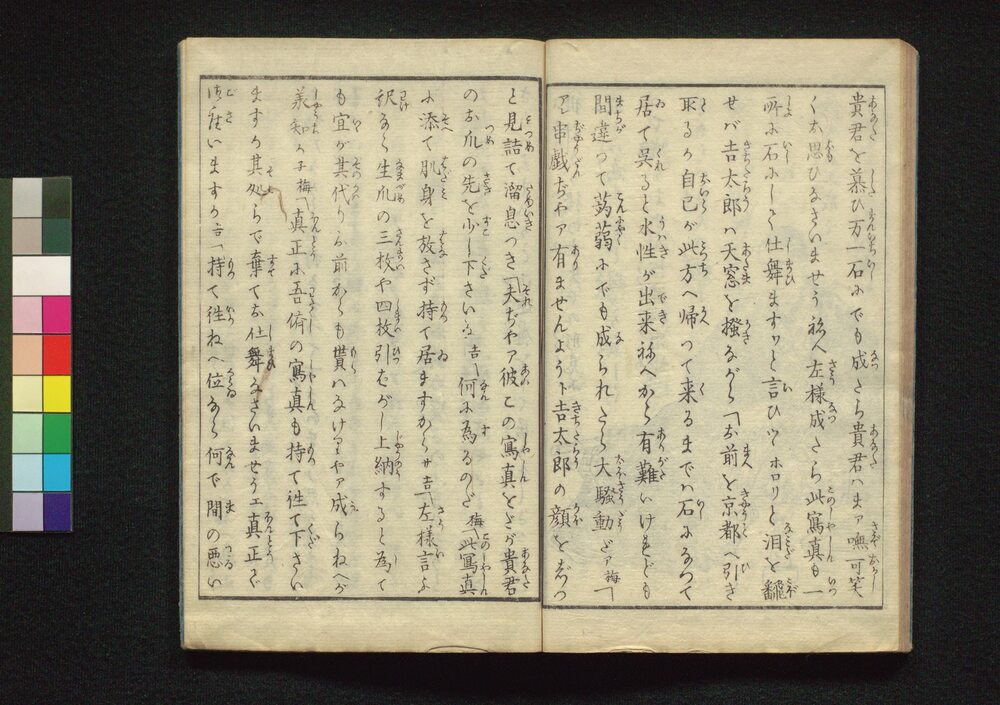 貴君を慕ひ万一石にでも成たら貴君ハまァ嘸可笑
くお思ひなさいませう ねへ左様成たら此寫真も一
所に石にしく仕舞ますヨと言ひツヽホロリと泪を飜
せバ吉太郎ハ天窓を掻ながら「お前を京都へ引き
取るか自己が此方へ帰つて来るまでハ石になつて
居て呉ると水性が出来ねへから有難いけれども
間違つて蒟蒻にでも成られたら大騒動だァ 梅「
アレ串戯ぢやア有ませんようト吉太郎の顔をぢつ
と見詰て溜息つき「夫ぢやア彼この寫真とさが貴君
のお爪の先を少し下さいな 吉「何に為るのだ 梅「此寫真
に添て肌身を放さず持て居ますからサ 吉「左様言ふ
訳なら生爪の三枚や四枚引むがし上納すると為て
も宜が其代りお前からも貰ハなけりやア成らねへが
承知か子 梅「真正に吾儕の寫真も持て往て下さい
ますか其処らで棄てお仕舞なさいませうエ真正で
ございますか 吉「持て往ねへ位なら何で間の悪い